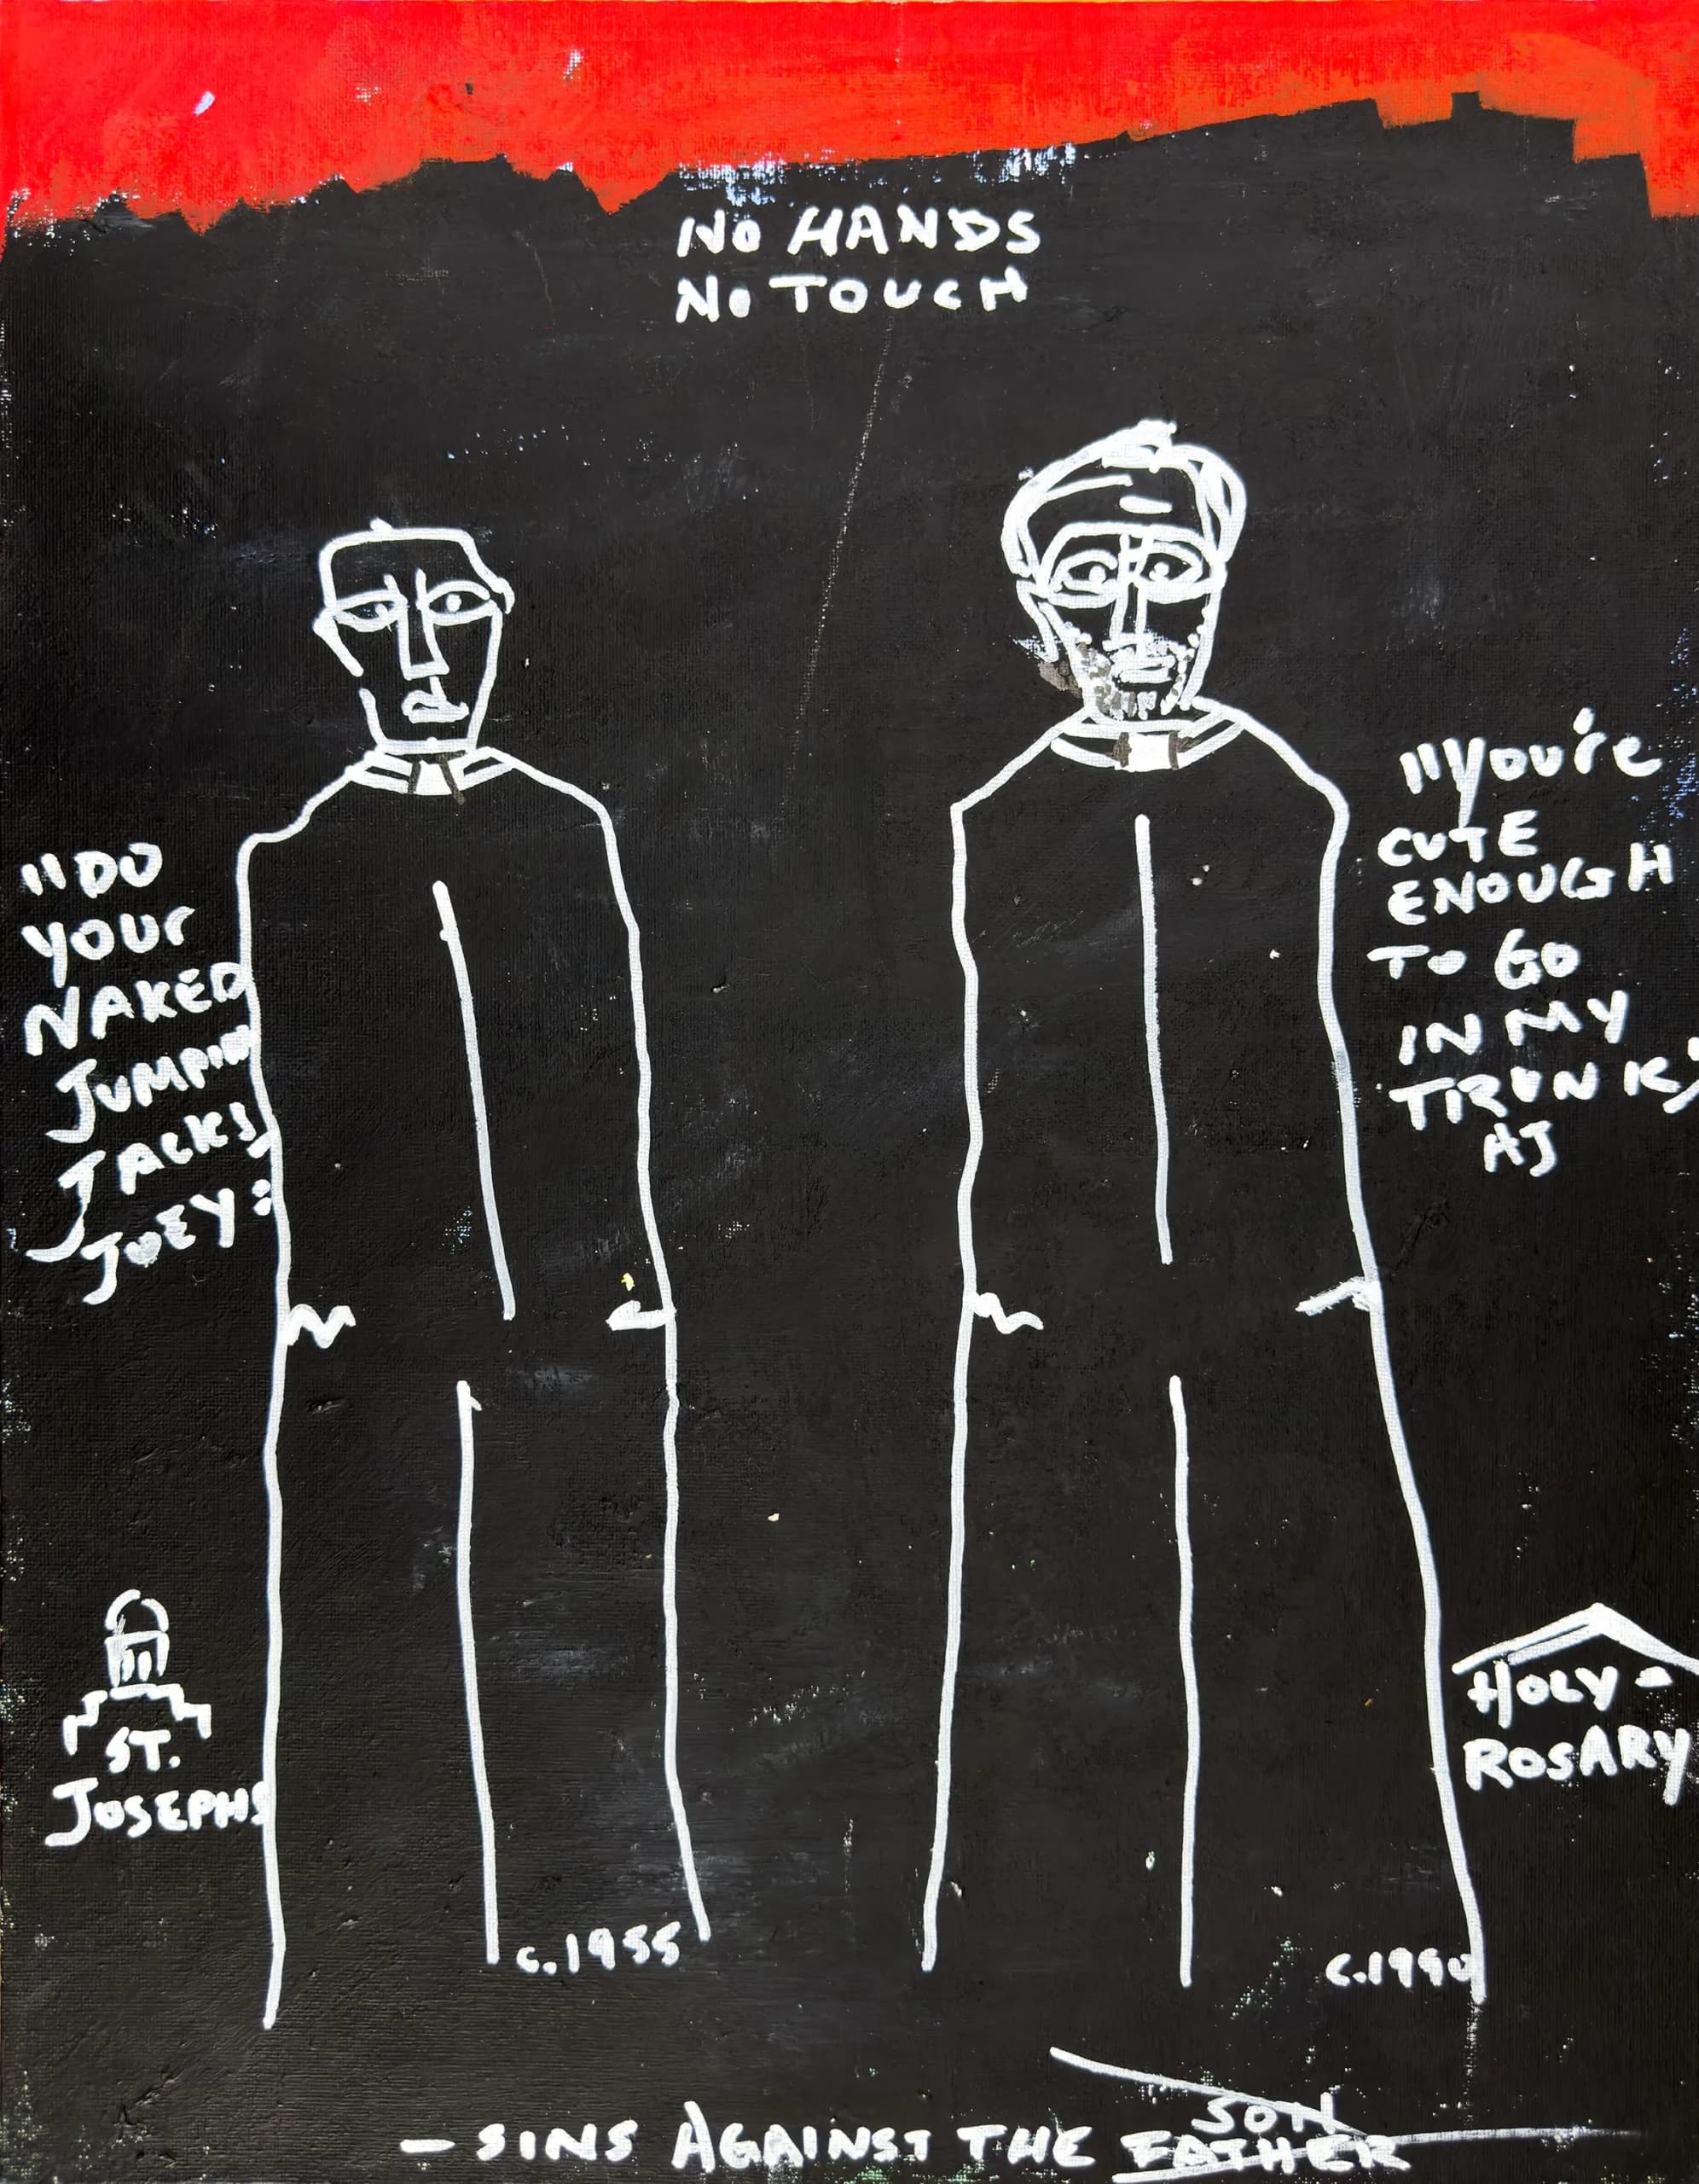 NO HANDS
NO TOUCH
"DO
YOUR
NAKED
JUMPIN
JACKS
JOEY:
"YOU'RE
CUTE
ENOUGH
TO GO
IN MY
TRUNK,
AJ
ST.
JOSEPHS
HOLY-
ROSARY
C.1955
C.1990
SON
— SINS AGAINST THE FATHER